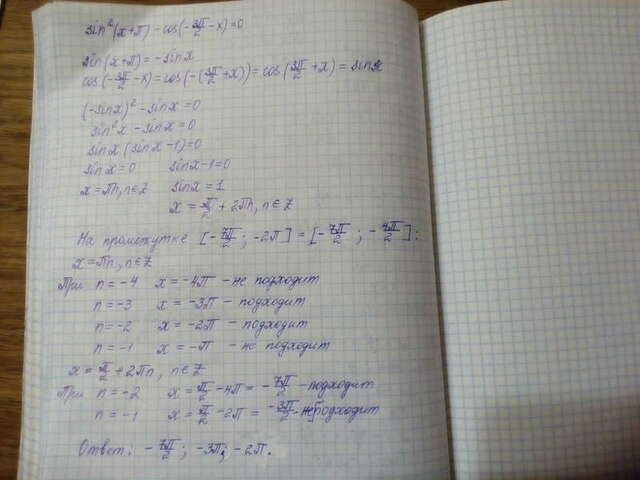 sin²(x+π) - cos(-3π/2 - x) = 0
sin(x+π) = -sin x
cos(-3π/2 - x) = cos(-(3π/2 + x)) = cos(3π/2 + x) = sin x
(-sin x)² - sin x = 0
sin²x - sin x = 0
sin x (sin x - 1) = 0
sin x = 0 sin x - 1 = 0
x = πn, n∈Z sin x = 1
x = π/2 + 2πn, n∈Z
На промежутке [-7π/2; -2π] = [-7π/2; -4π/2]:
x = πn, n∈Z
При n = -4 x = -4π - не подходит
n = -3 x = -3π - подходит
n = -2 x = -2π - подходит
n = -1 x = -π - не подходит
x = π/2 + 2πn, n∈Z
При n = -2 x = π/2 - 4π = -7π/2 - подходит
n = -1 x = π/2 - 2π = -3π/2 - не подходит
Ответ: -7π/2; -3π; -2π.